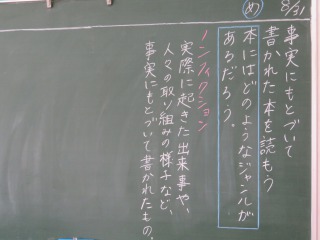 8/31
事実にもとづいて
書かれた本を読もう
め
本にはどのようなジャンルが
あるだろう。
ノンフィクション
実際に起きた出来事や、
人々の取り組みの様子など、
事実にもとづいて書かれたもの。